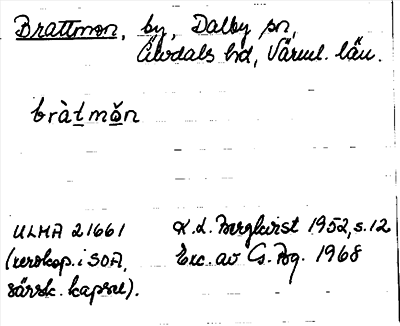 Brattmon, by, Dalby sn,
Älvdals hd, Värml. län.
bràtmǒn
ULMA 21661 K.L. Bergkvist 1952, s. 12
(xerokop. i SOA, Exc. av G. Bg. 1968
särsk. kapsel).